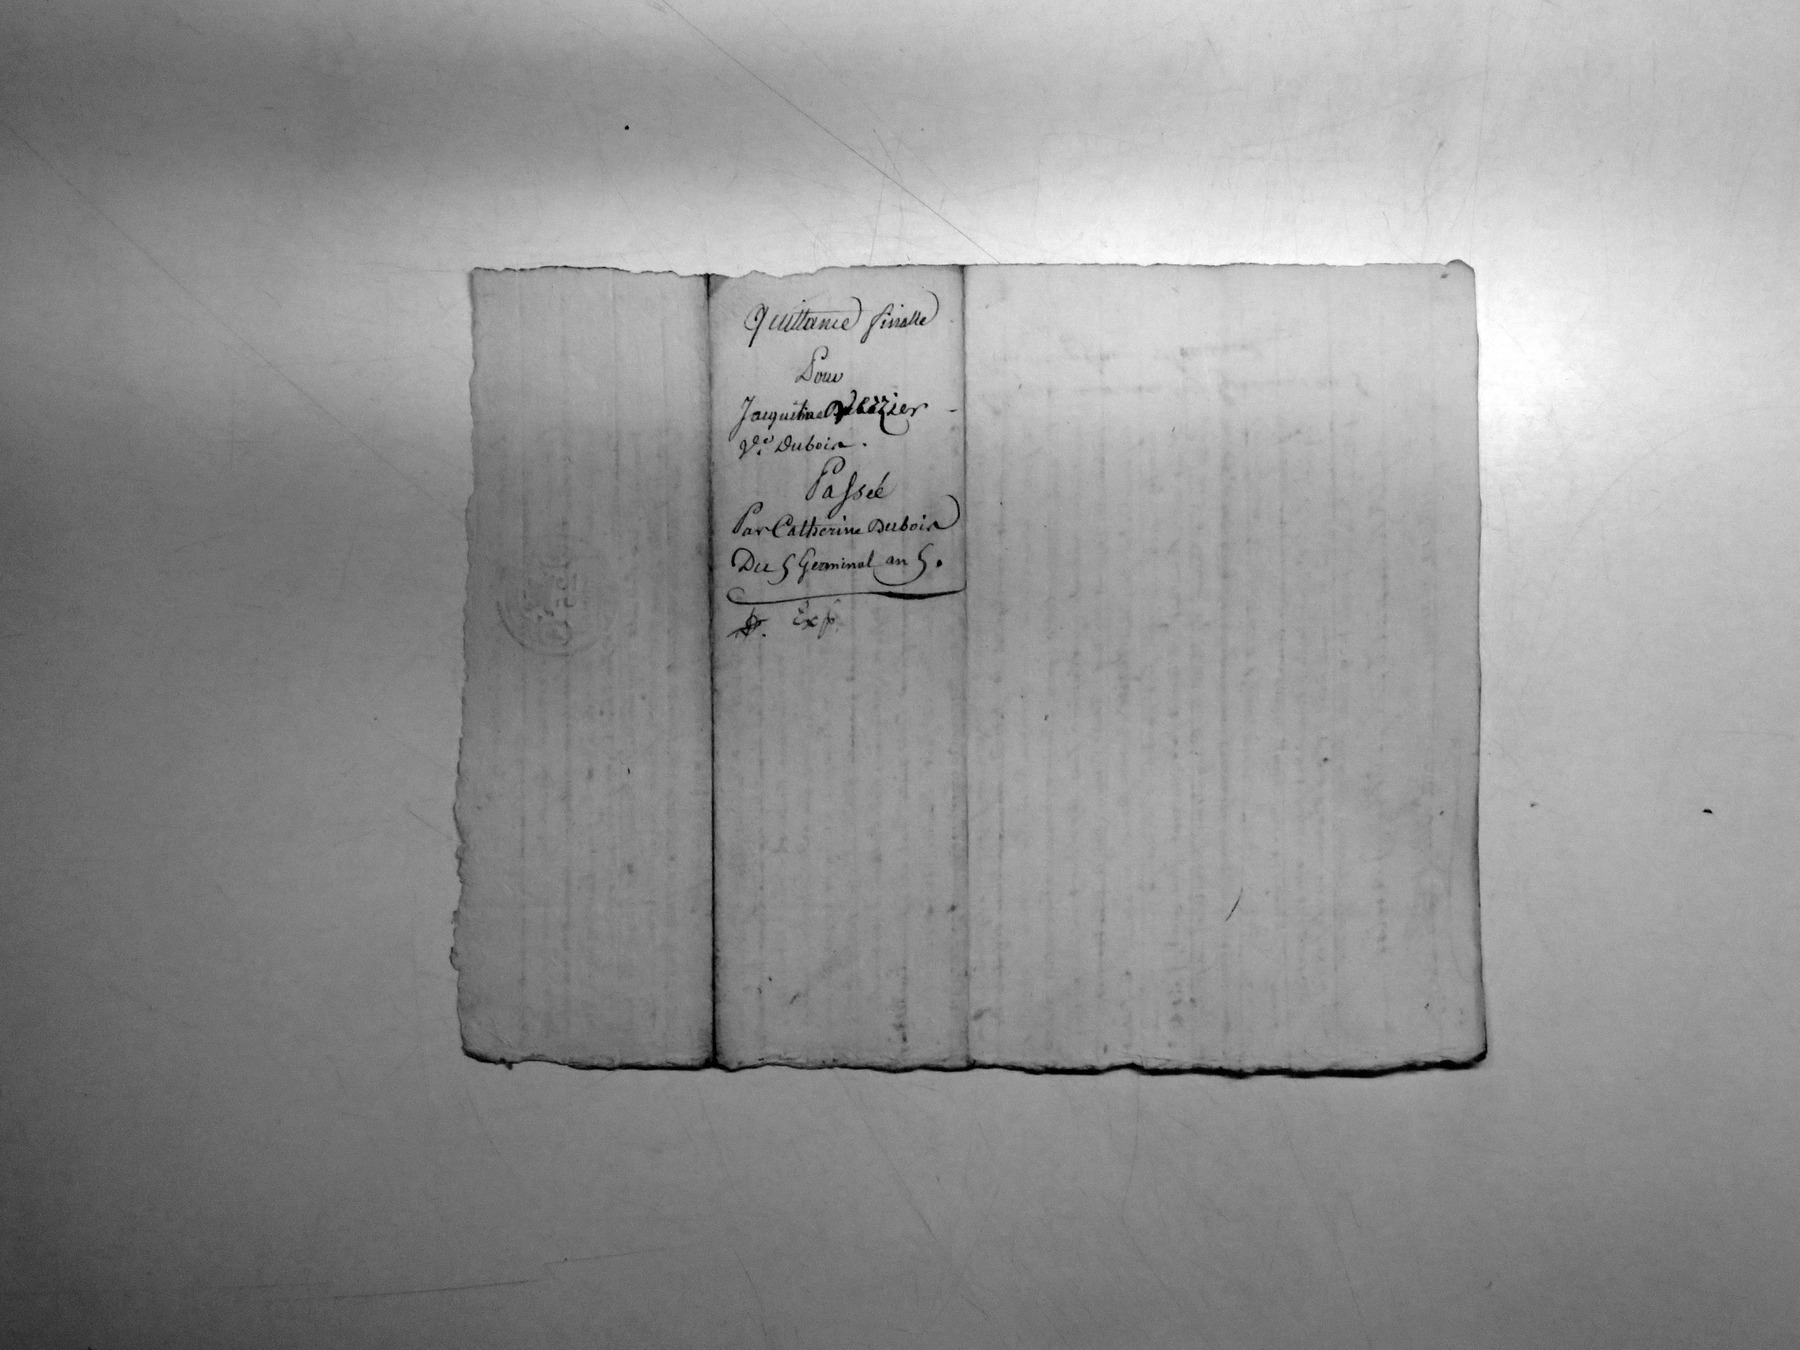 Quittance finalle
Pour
Jacqueline
Ve. Dubois.
Passée
Par Catherine Dubois
Du 5 Germinal an 5.
Exp.